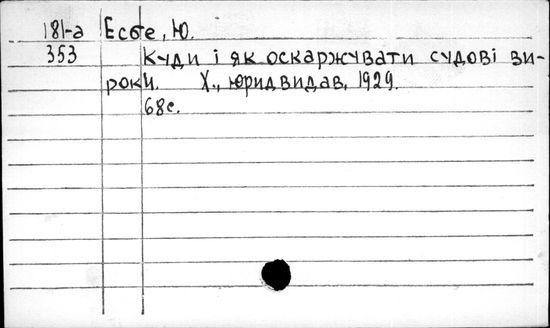 181-а Есбе, Ю.
353 Куди і як оскаржувати судові ви-
роки. Х., юридвидав, 1929.
68с.